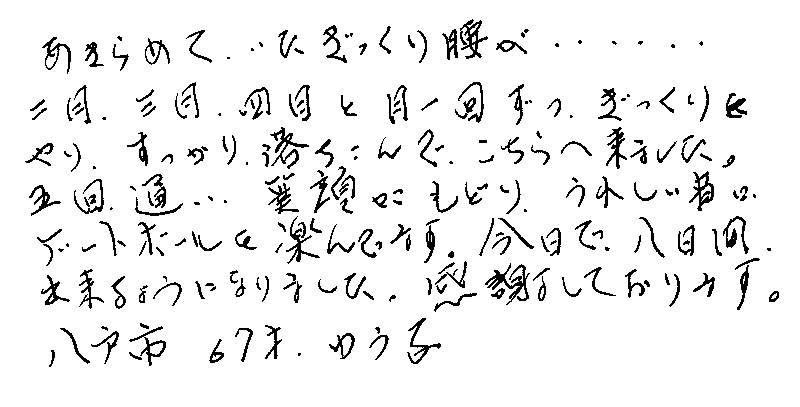 あきらめて‥いたぎっくり腰が‥‥‥
二月、三月、四月と月一回ずつ、ぎっくりを
やり、すっかり落ちこんで、こちらへ来ました。
五回、通い‥笑顔にもどり、うれしい毎日
ゲートボールを楽んでます。今日で、八日間、
出来るようになりました。感謝しております。
八戸市 67才、ゆう子